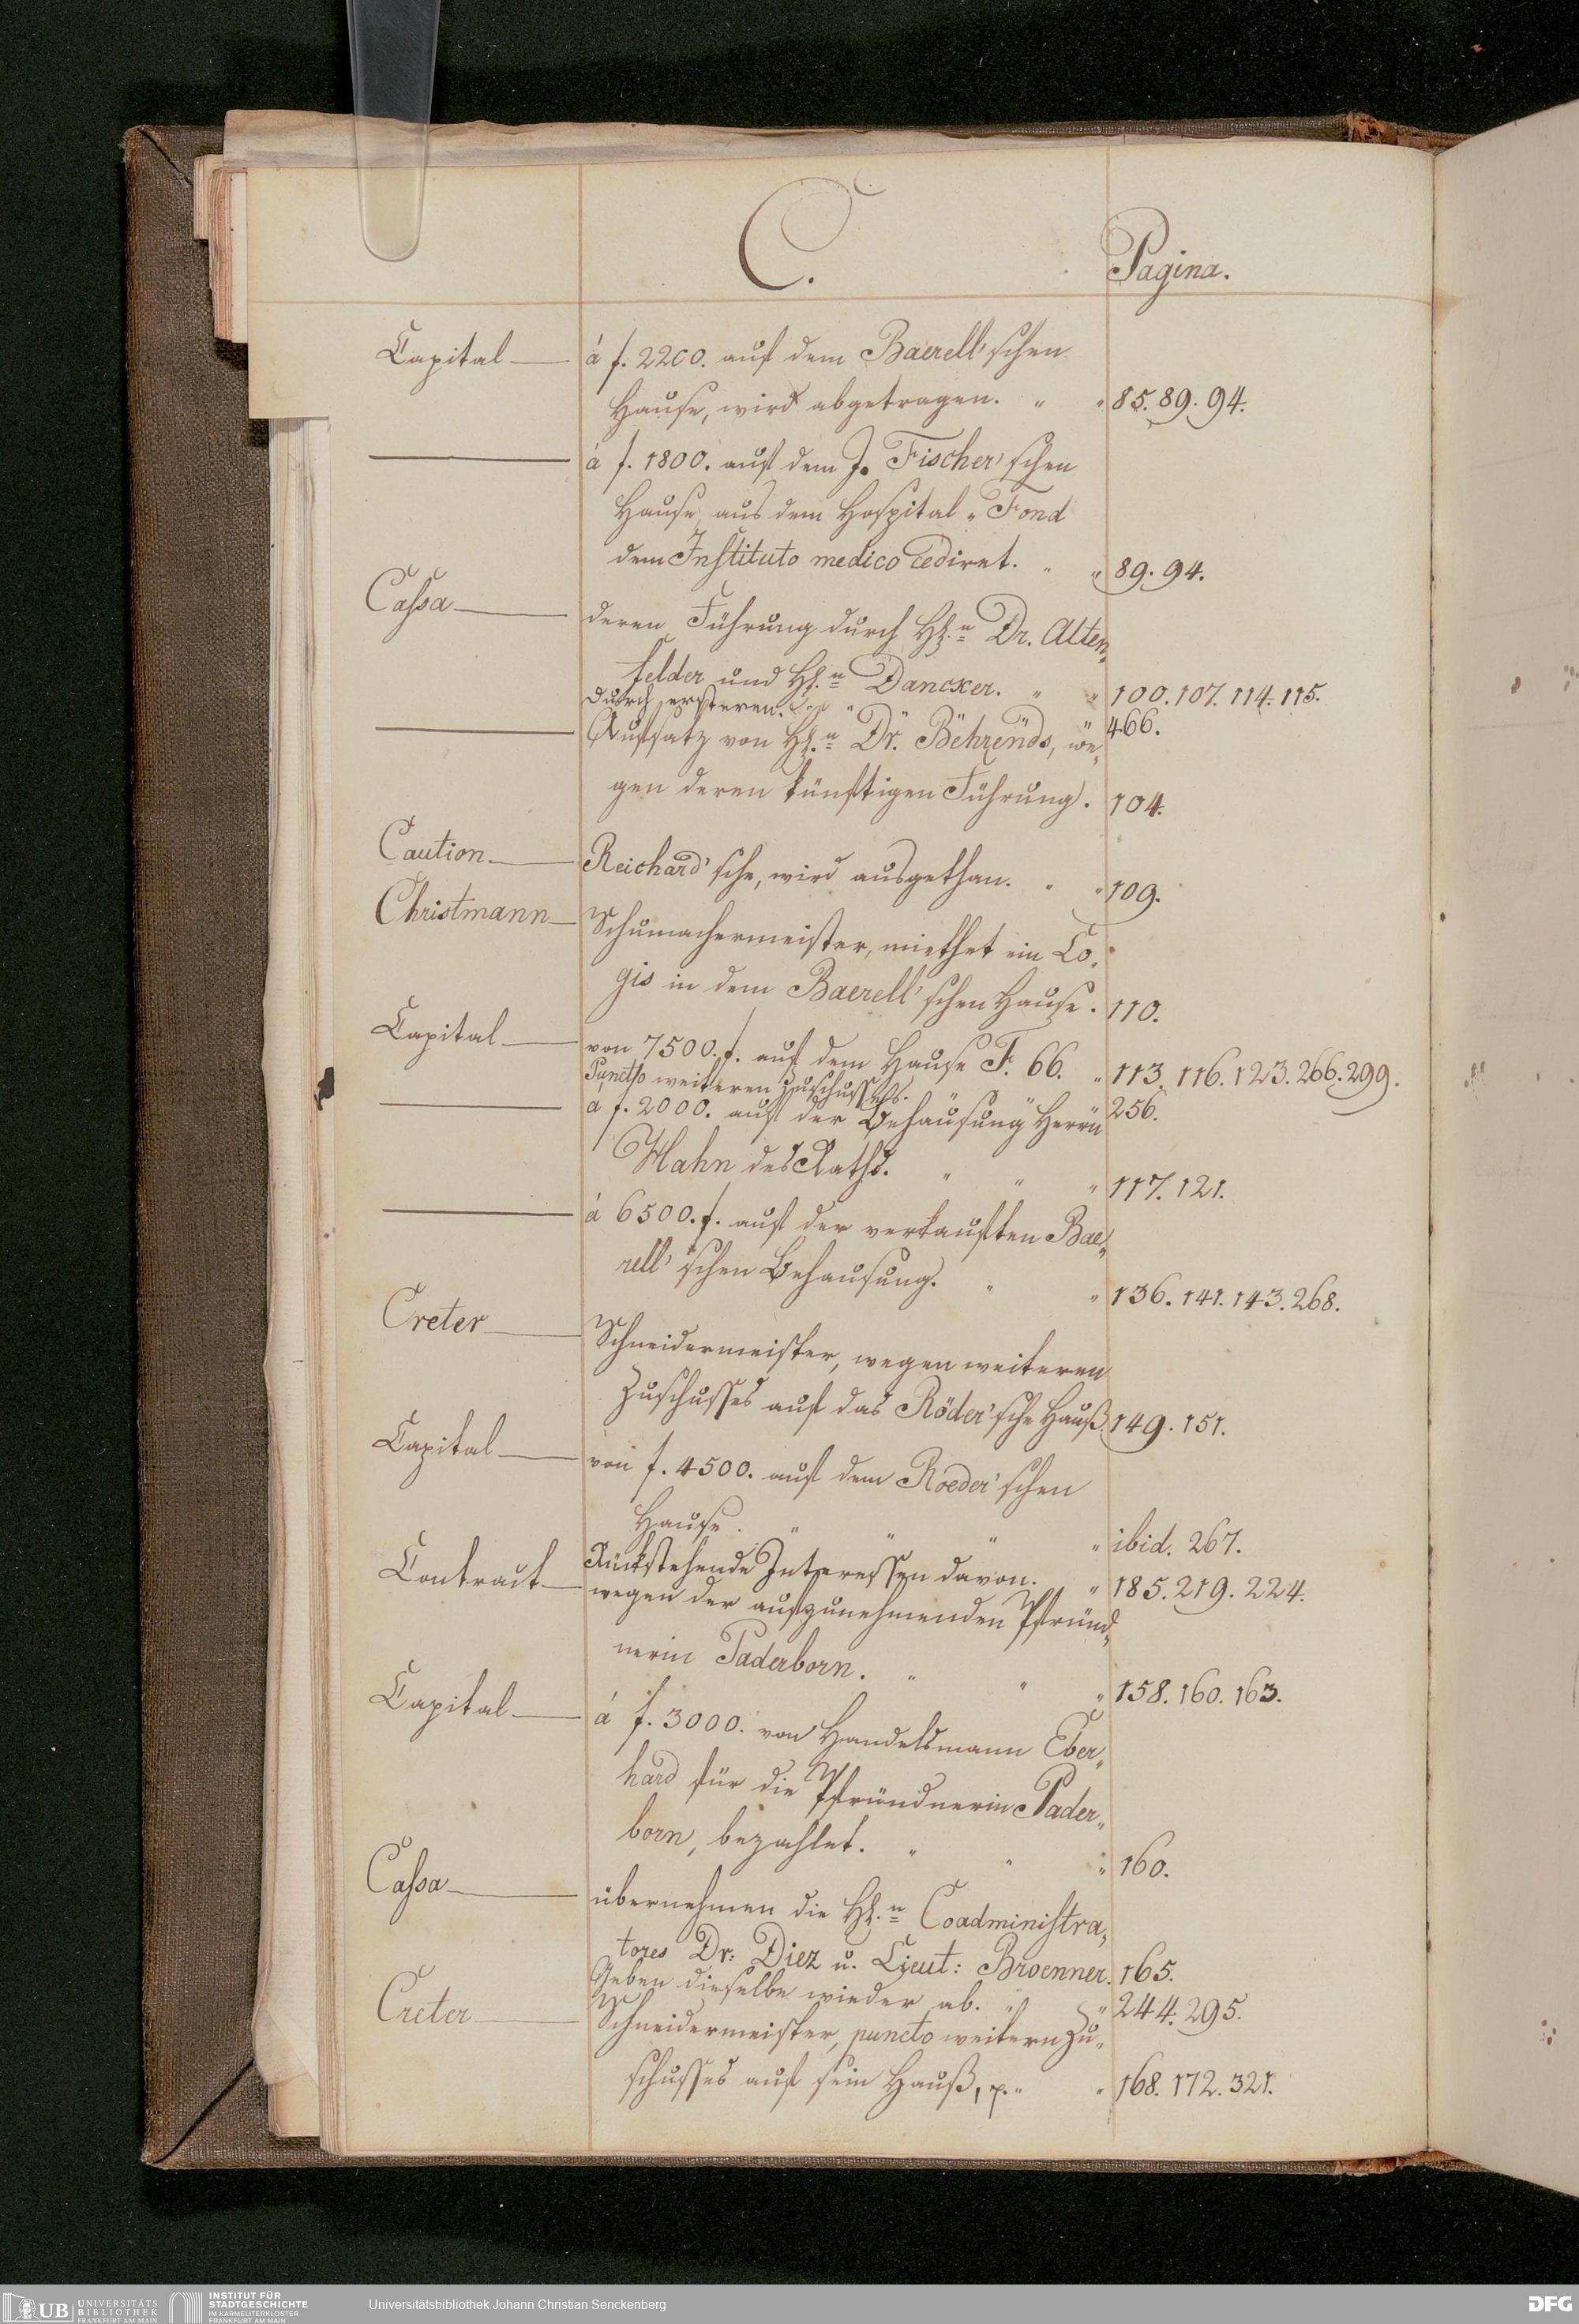 C.
Pagina.
Capital — á f. 2200. auf dem Baerell'schen
Hause, wird abgetragen. " " 85. 89. 94.
— á f. 1800. auf dem J. Fischer'schen
Hause aus dem Hospital „ Fond
dem Instituto medico cediret. " " 89. 94.
Cassa — deren Führung durch HH.n Dr. Alten„
felder und HH.n Dancker. " " 100. 107. 114. 115.
durch ersteren. " " " " " 466.
— Aufsatz von HH.n Dr. Behrends, we„
gen deren künftigen Führung. 104.
Caution. — Reichard'sche, wird ausgethan. " " 109.
Christmann — Schumachermeister, miethet ein Lo„
gis in dem Baerell'schen Hause. 110.
Capital — von 7500. f. auf dem Hause F. 66. " 113. 116. 123. 266. 299.
Puncto weiteren Zuschusses. " " " 256.
— a f. 2000. auf der Behausung Herrn
Mahn des Raths. " " " 117. 121.
— á 6500. f. auf der verkauften Bae„
rell'schen Behausung. " " 136. 141. 143. 268.
Creter — Schneidermeister, wegen weiteren
Zuschusses auf das Röder'sche Hauß. 149. 151.
Capital — von f. 4500. auf dem Roeder'schen
Hause. " " " " ibid. 267.
Rückstehende Interessen davon. " 185. 219. 224.
Contract — wegen der aufzunehmenden Pfründ„
nerin Paderborn. " " " 158. 160. 163.
Capital — á f. 3000. von Handelsmann Eber„
hard für die Pfründnerin Pader„
born, bezahlet. " " " 160.
Cassa — übernehmen die HH.n Coadministra„
tores Dr: Diez u. Lieut: Broenner. 165.
Geben dieselbe wieder ab. " " 244. 295.
Creter — Schneidermeister, puncto weitern Zu„
schusses auf sein Hauß, p. " " 168. 172. 321.
UB UNIVERSITÄTS
BIBLIOTHEK
FRANKFURT AM MAIN
INSTITUT FÜR
STADTGESCHICHTE
IM KARMELITERKLOSTER
FRANKFURT AM MAIN
Universitätsbibliothek Johann Christian Senckenberg
DFG